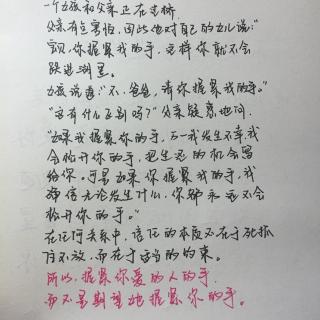 一个女孩和父亲正在走桥
父亲有点害怕,因此他对自己的女儿说:"
宝贝,你握紧我的手,这样你就不会
跌进湖里。
女孩说道:"不,爸爸,请你握紧我的手。"
"这有什么区别吗?"父亲疑惑地问.
"如果我握紧你的手,万一我发生不幸,我
会松开你的手,把生还的机会留
给你。可是如果你握紧我的手,我
确信无论发生什么,你都永远不会
松开你的手。"
在任何关系中,信任的本质不在于死抓
住不放,而在于适当的约束。
所以,握紧你爱的人的手,
而不是期望她握紧你的手。